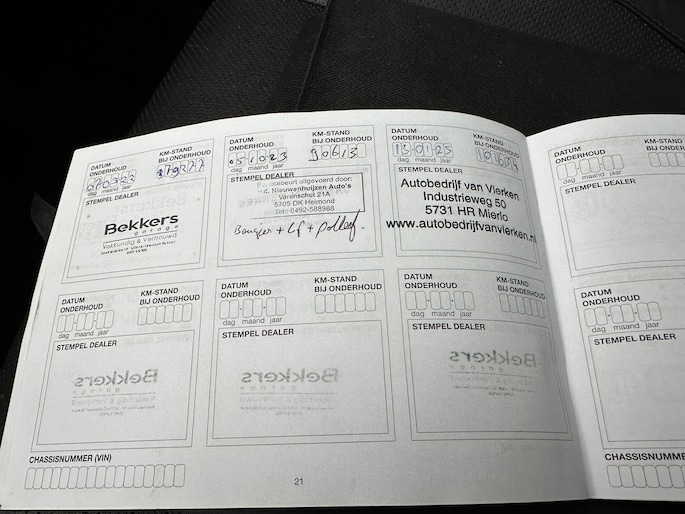 DATUM ONDERHOUD
KM-STAND BIJ ONDERHOUD
070323
dag maand jaar
STEMPEL DEALER
Bekkers
garage
Vakkundig & Vertrouwd
DATUM ONDERHOUD
KM-STAND BIJ ONDERHOUD
05-10-23
90613
dag maand jaar
STEMPEL DEALER
beurt uitgevoerd door:
Nieuwenhuijzen Auto's
Varenschut 21A
5705 DK Helmond
Tel: 0492-588968
Bougies + LF +
DATUM ONDERHOUD
KM-STAND BIJ ONDERHOUD
13-01-25
dag maand jaar
STEMPEL DEALER
Autobedrijf van Vlerken
Industrieweg 50
5731 HR Mierlo
www.autobedrijfvanvlerken.nl
DATUM ONDERHOUD
KM-STAND
BIJ
dag maand jaar
STEMPEL DEALER
DATUM ONDERHOUD
KM-STAND BIJ ONDERHOUD
dag maand jaar
STEMPEL DEALER
Bekkers
garage
DATUM ONDERHOUD
KM-STAND BIJ ONDERHOUD
dag maand jaar
STEMPEL DEALER
Bekkers
garage
DATUM ONDERHOUD
KM-STAND BIJ ONDERHOUD
dag maand jaar
STEMPEL DEALER
Bekkers
garage
DATUM ONDERHOUD
BIJ
dag maand jaar
STEMPEL DEALER
CHASSISNUMMER (VIN)
21